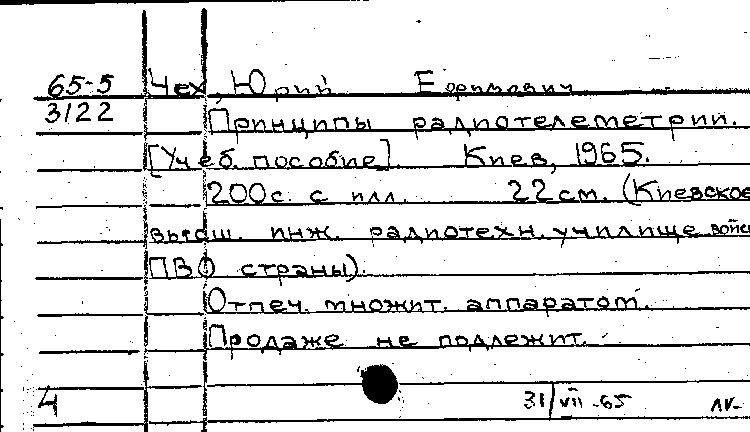 65-5 Чех, Юрий Ефимович
3122 Принципы радиотелеметрии.
[Учеб. пособие]. Киев, 1965.
200 с. с илл. 22 см. (Киевское
высш. инж. радиотехн. училище войск
ПВО страны).
Отпеч. множит. аппаратом.
Продаже не подлежит.
4 31/VII-65